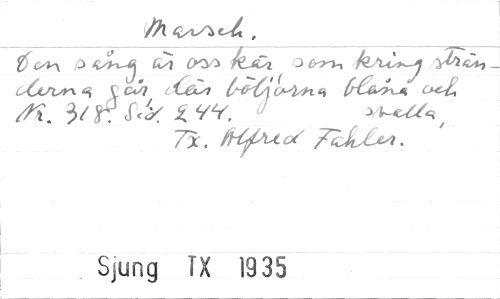 Marsch.
Den sång är oss kär, som kring strän-
derna går, där böljorna blåna och
Nr. 318. Sid. 244. svalla,
Tx. Alfred Fahler.
Sjung TX 1935